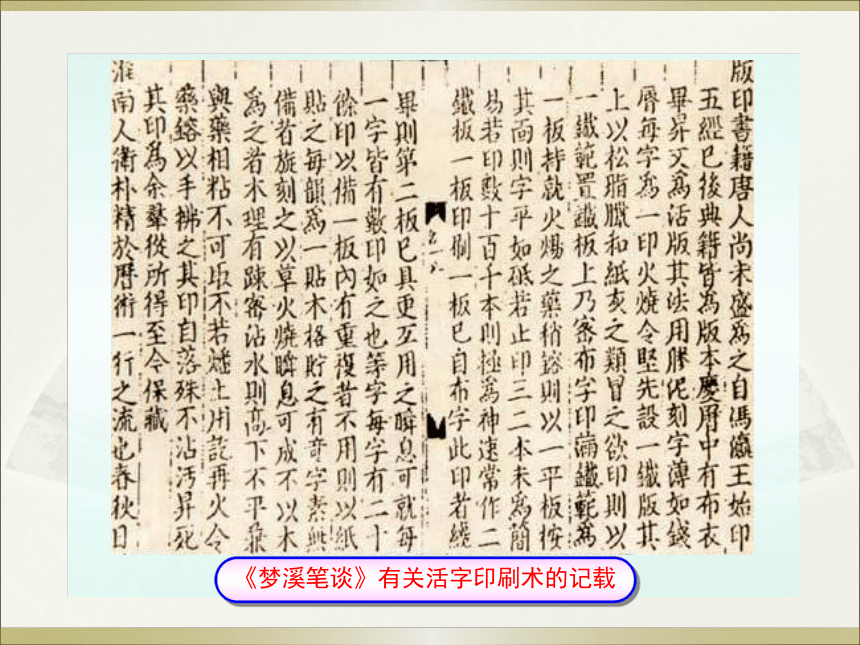 版印書籍唐人尚未盛爲之自馮瀛王始印
五經已後典籍皆爲版本慶曆中有布衣
畢昇又爲活版其法用膠泥刻字薄如錢
脣每字爲一印火燒令堅先設一鐵版其
上以松脂臘和紙灰之類冒之欲印則以
一鐵範置鐵板上乃密布字印滿鐵範爲
一板持就火煬之藥稍鎔則以一平板按
其面則字平如砥若止印三二本未爲簡
易若印數十百千本則極爲神速常作二
鐵板一板印刷一板已自布字此印者纔
畢則第二板已具更互用之瞬息可就每
一字皆有數印如之也等字每字有二十
餘印以備一板內有重複者不用則以紙
貼之每韻爲一貼木格貯之有奇字素無
備者旋刻之以草火燒瞬息可成不以木
爲之者木理有踈密沾水則高下不平兼
與藥相粘不可取不若燔土用訖再火令
藥鎔以手拂之其印自落殊不沾汚昇死
其印爲余羣從所得至今保藏
淮南人衛朴精於曆術一行之流也春秋日
《梦溪笔谈》有关活字印刷术的记载